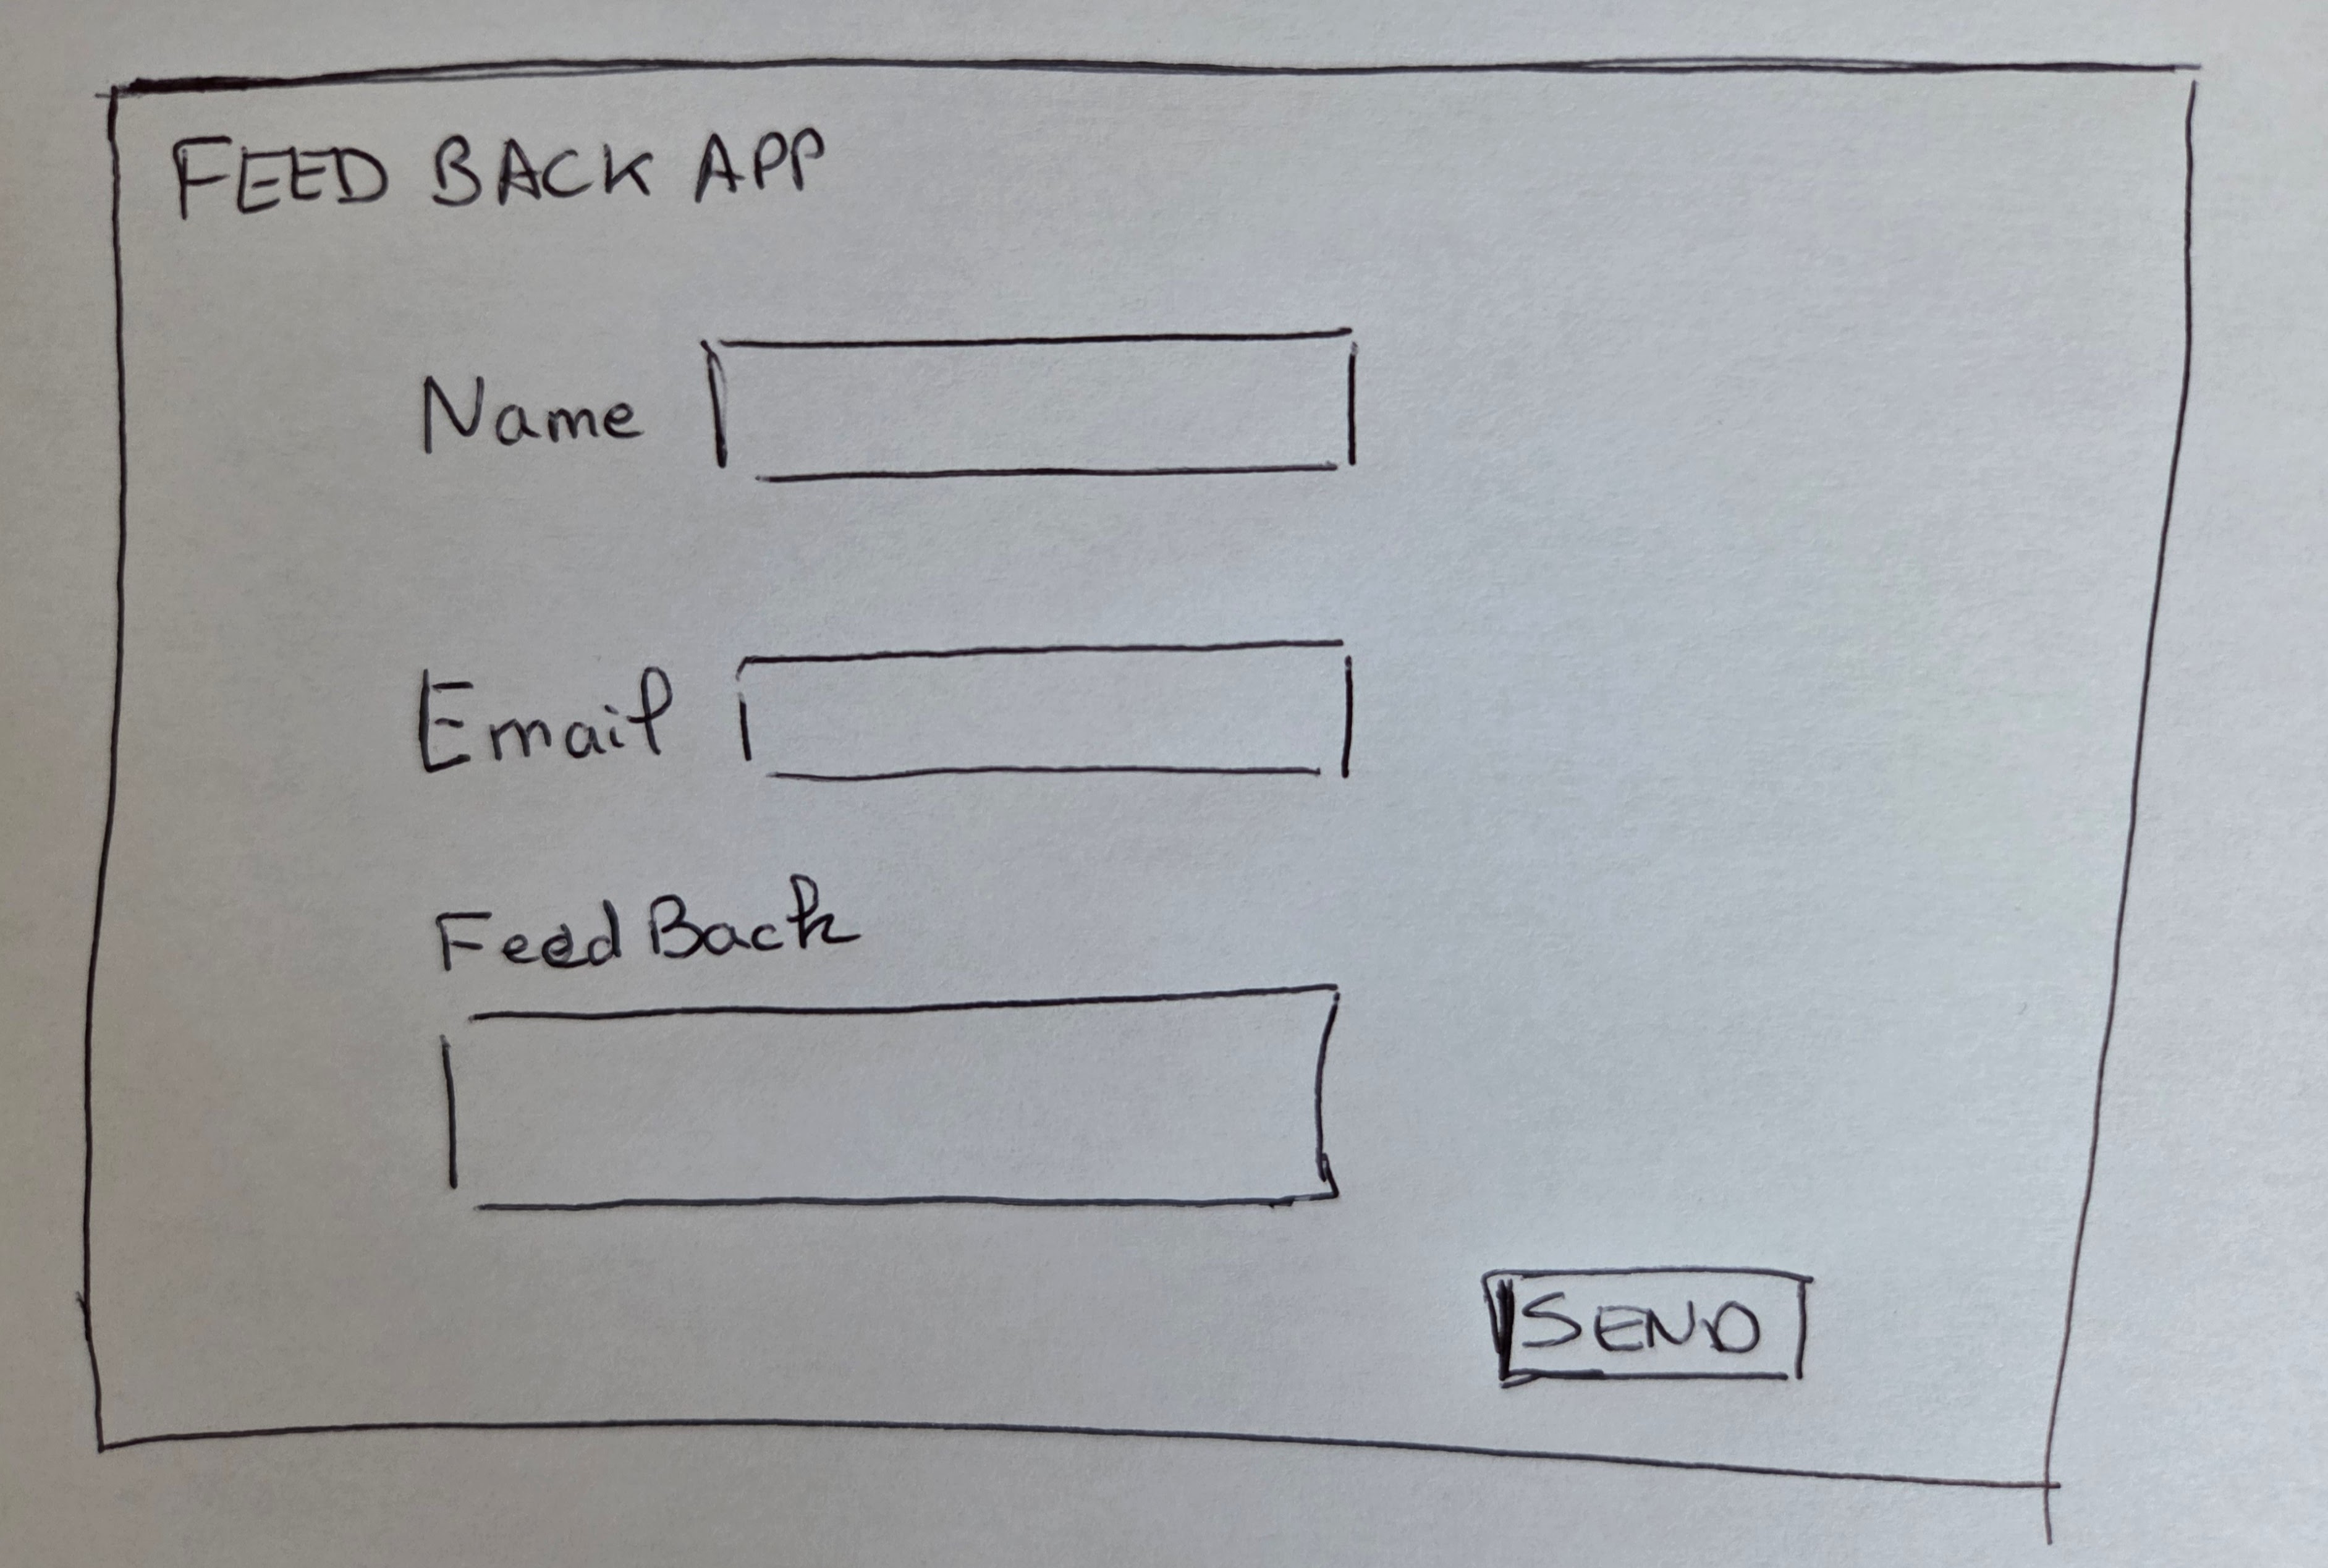 FEED BACK APP
Name
Email
FeedBack
SEND